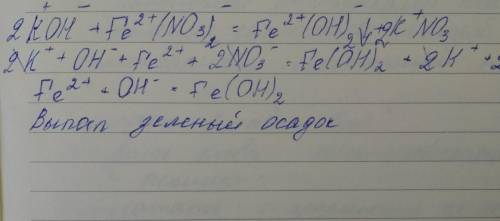 2K⁺OH⁻ + Fe²⁺(NO₃)₂⁻ = Fe²⁺(OH)₂↓ + 2K⁺NO₃
2K⁺ + OH⁻ + Fe²⁺ + 2NO₃⁻ = Fe(OH)₂ + 2K⁺ + 2
Fe²⁺ + OH⁻ = Fe(OH)₂
Выпал зеленый осадок